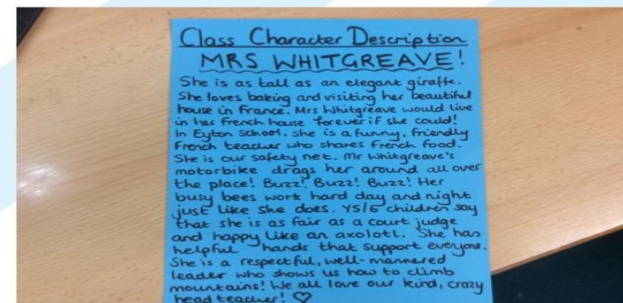 Class Character Description
MRS WHITGREAVE!
She is as tall as an elegant giraffe.
She loves baking and visiting her beautiful
house in France. Mrs Whitgreave would live
in her French house forever if she could!
In Eyton School, she is a funny, friendly
French teacher who shares French food.
She is our safety net. Mr Whitgreave's
motorbike drags her around all over
the place! Buzz! Buzz! Buzz! Her
busy bees work hard day and night
just like she does. Y5/6 children say
that she is as fair as a court judge
and happy like an axolotl. She has
helpful hands that support everyone.
She is a respectful, well-mannered
leader who shows us how to climb
mountains! We all love our kind, crazy
head teacher! ♡